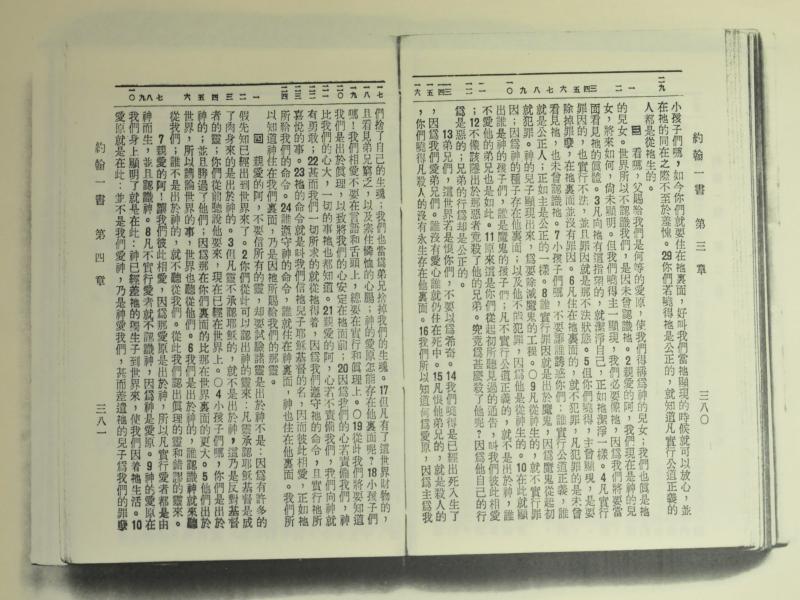 約翰一書 第三章 三八〇
小孩子們嗎,如今你們就要住在祂裏面,好叫我們當祂顯現的時候就可以放心,並
在祂的同在之際不至於羞愧。29你們若曉得祂是公正的,就知道凡實行公道正義的
人都是從祂生的。
三 看嗎,父賜給我們是何等的愛原,使我們得稱爲神的兒女;我們也眞是祂
的兒女。世界所以不認識我們,是因未曾認識祂。2親愛的阿,我們現在是神的兒
女,將來如何,尙未顯明。但我們曉得主一顯現,我們必要像祂,因爲我們將要當
面看見祂的眞體。3凡向祂有這指望的,就潔淨自己,正如祂潔淨一樣。4凡實行
罪因的,也實行不法,並且罪因就是那不法狀態。5但你們曉得,主曾顯現,是要
除掉罪孽,在祂裏面並沒有罪因。6凡住在祂裏面的,就不犯罪,凡犯罪的是未曾
看見祂,也未曾認識祂。7小孩子們嗎,不要讓誰誘惑你們;誰實行公道正義,誰
就是公正人;正如主是公正的一樣。8誰實行罪因就是出於魔鬼,因爲魔鬼從起初
就犯罪。神的兒子顯現出來,爲要除滅魔鬼的工操。〇9凡從神生的,就不實行罪
因;因爲神的種子存在他裏面;以及他不能犯罪,因爲他是從神生的。10在此就顯
出誰是神的孩子們,誰是魔鬼的孩子們;凡不實行公道正義的,就不是出於神,誰
不愛他的弟兄也是如此。11原來這是你們從起初所聽見過的通告,叫我們彼此相愛
;12不像該隱出於那惡者竟殺了他的弟兄。究竟爲甚麼殺了他呢?因爲他自己的行
爲是惡的;兄弟的行爲却是公正的。
13弟兄們,這世界若是恨你們,不要以爲希奇。14我們曉得是已經出死入生了
,因爲我們愛弟兄們。誰沒有愛心誰就仍住在死中。15凡恨他弟兄的,就是殺人的
,你們曉得凡殺人的沒有永生存在他裏面。16我們所以知道何爲愛原,因爲主爲我
們捨了自己的生魂;我們也當爲弟兄捨掉我們的生魂。17但凡有了這世界財物的,
且看見弟兄窮乏,以及塞住憐恤的心腸;神的愛原怎能存在他裏面呢?18小孩子們
嗎!我們相愛不要在言語和舌頭上,總要在實行和眞理上。〇19從此我們將要知道
我們是出於眞理,以致將我們的心安定在祂面前;20因爲我們的心若責備我們,神
比我們的心大,一切的事祂也都知道。21親愛的阿,心若不責備我們,我們向神就
有勇敢;22甚而我們一切所求的就從祂得着,因爲我們遵守祂的命令,且實行祂所
喜悅的事。23祂的命令就是叫我們信祂兒子耶穌基督的名,因而彼此相愛,正如祂
所給我們的命令。24誰遵守神的命令,誰就住在神裏面,神也住在他裏面。我們所
以知道神住在我們裏面,乃是因祂所賜給我們的那靈。
四 親愛的阿,不要信所有的靈,却要試驗諸靈是出於神不是;因爲有許多的
假先知已經出到世界來了。2你們從此可以認出神的靈來:凡靈承認耶穌基督是成
了肉身來的是出於神的。3但凡靈不承認耶穌的,就不是出於神,這乃是反對基督
者的靈;你們從前聽說他要來,現在已經在世界上。〇4小孩子們嗎,你們是出於
神的;並且勝過了他們;因爲那在你們裏面的比那在世界裏面的更大。5他們出於
世界,所以講論世界的事,世界也聽從他們。6我們是出於神的,誰認識神就來聽
從我們;誰不是出於神的,就不聽從我們。從此我們認出眞理的靈和錯謬的靈來。
7親愛的阿!讓我們彼此相愛,因爲那愛原是出於神,所以凡實行愛者都是由
神而生,並且認識神。8凡不實行愛者就不認識神,因爲神是愛原。9神的愛原在
我們身上顯明了就是在此:神已經差祂的獨生子到世界來,使我們因着祂生活。10
愛原就是在此:並不是我們愛神,乃是神愛我們,甚而差遣祂的兒子爲我們的罪孽
約翰一書 第四章 三八一